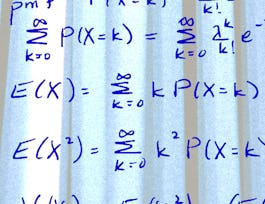 pmf
k!
∞ ∑ k=0 P(X=k) = ∞ ∑ k=0 λ^k / k! e^-
E(X) = ∞ ∑ k=0 k P(X=k)
E(X²) = ∞ ∑ k=0 k² P(X=k)